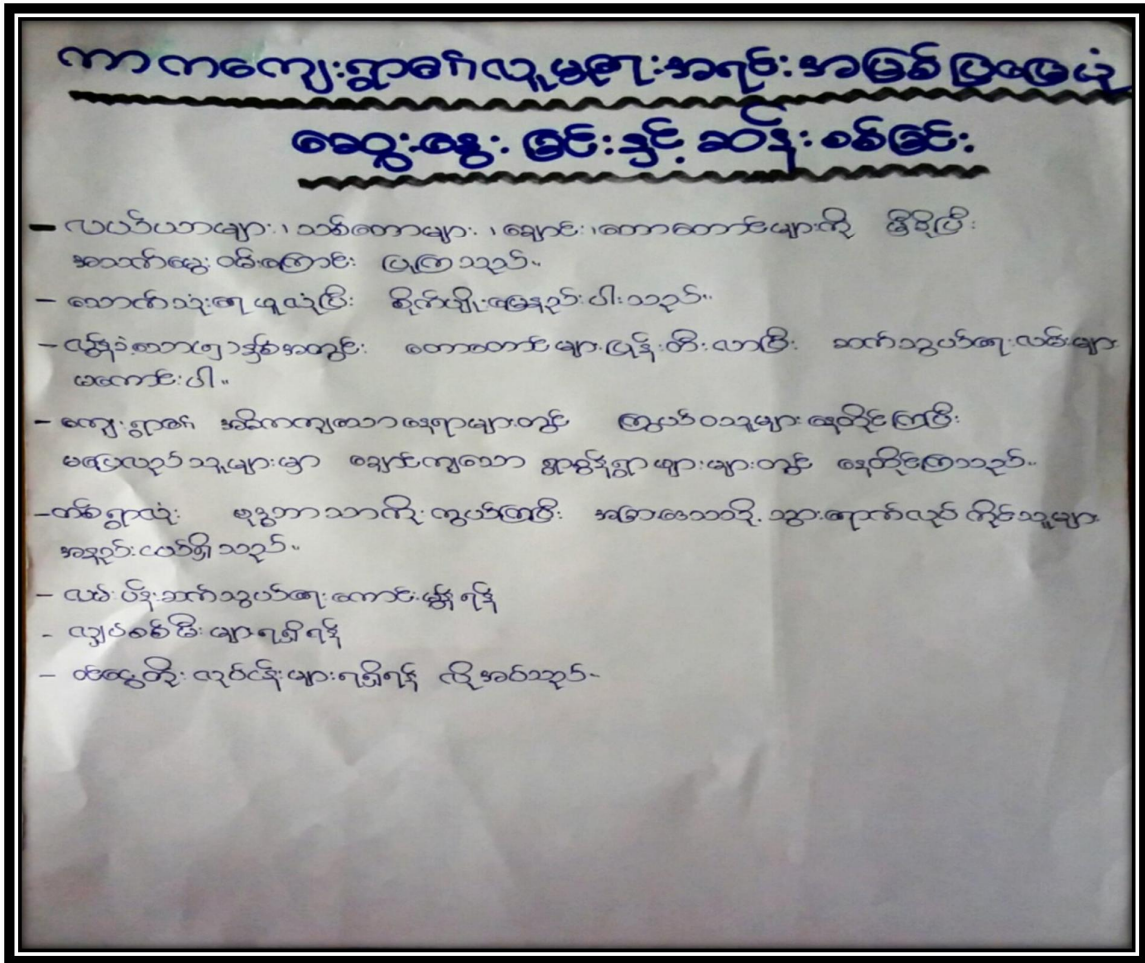 ကာကကျေးရွာ၏လူမှုရေးအရင်းအမြစ်ပြမြေပုံ
ဆွေးနွေးခြင်းနှင့်ဆန်းစစ်ခြင်း
- လယ်ယာများ၊ သစ်တောများ၊ ချောင်း၊ တောတောင်များကို မှီခိုပြီး
အသက်မွေးဝမ်းကြောင်း ပြုကြသည်။
- သောက်သုံးရေ ယူသုံးပြီး စိုက်ပျိုးမြေနည်းပါးသည်။
- လွန်ခဲ့သော (၅) နှစ်အတွင်း တောတောင်များပြုန်းတီးလာပြီး ဆက်သွယ်ရေးလမ်းများ
မကောင်းပါ။
- ကျေးရွာ၏ အဓိကကျသောနေရာများတွင် ကြွယ်ဝသူများနေထိုင်ကြပြီး
မပြေလည်သူများမှာ ချောင်ကျသော ရွာစွန်ရွာဖျားများတွင် နေထိုင်ကြသည်။
- တစ်ရွာလုံး ဗုဒ္ဓဘာသာကိုးကွယ်ကြပြီး အခြားဒေသသို့သွားရောက်လုပ်ကိုင်သူများ
အနည်းငယ်ရှိသည်။
- လမ်းပန်းဆက်သွယ်ရေးကောင်းမွန်ရန်
- လျှပ်စစ်မီးများရရှိရန်
- ဝင်ငွေတိုးလုပ်ငန်းများရရှိရန် လိုအပ်သည်။